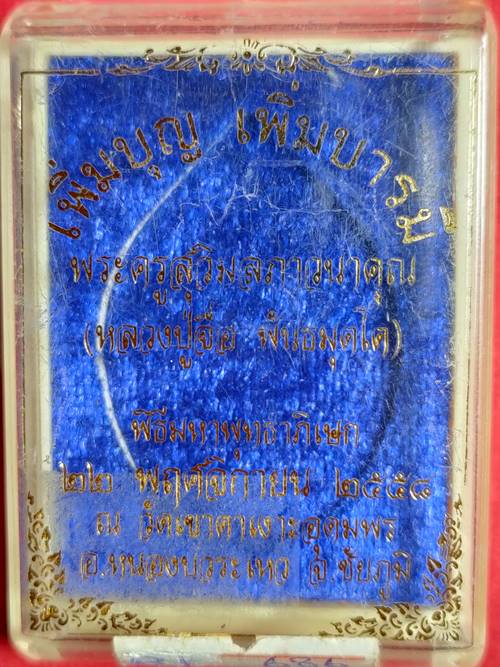 เพิ่มบุญ เพิ่มบารมี
พระครูสุวิมลภาวนาคุณ
(หลวงปู่จื่อ พันธมุตโต)
พิธีมหาพุทธาภิเษก
๒๒ พฤศจิกายน ๒๕๕๘
ณ วัดเขาตาเงาะอุดมพร
อ.หนองบัวระเหว จ.ชัยภูมิ